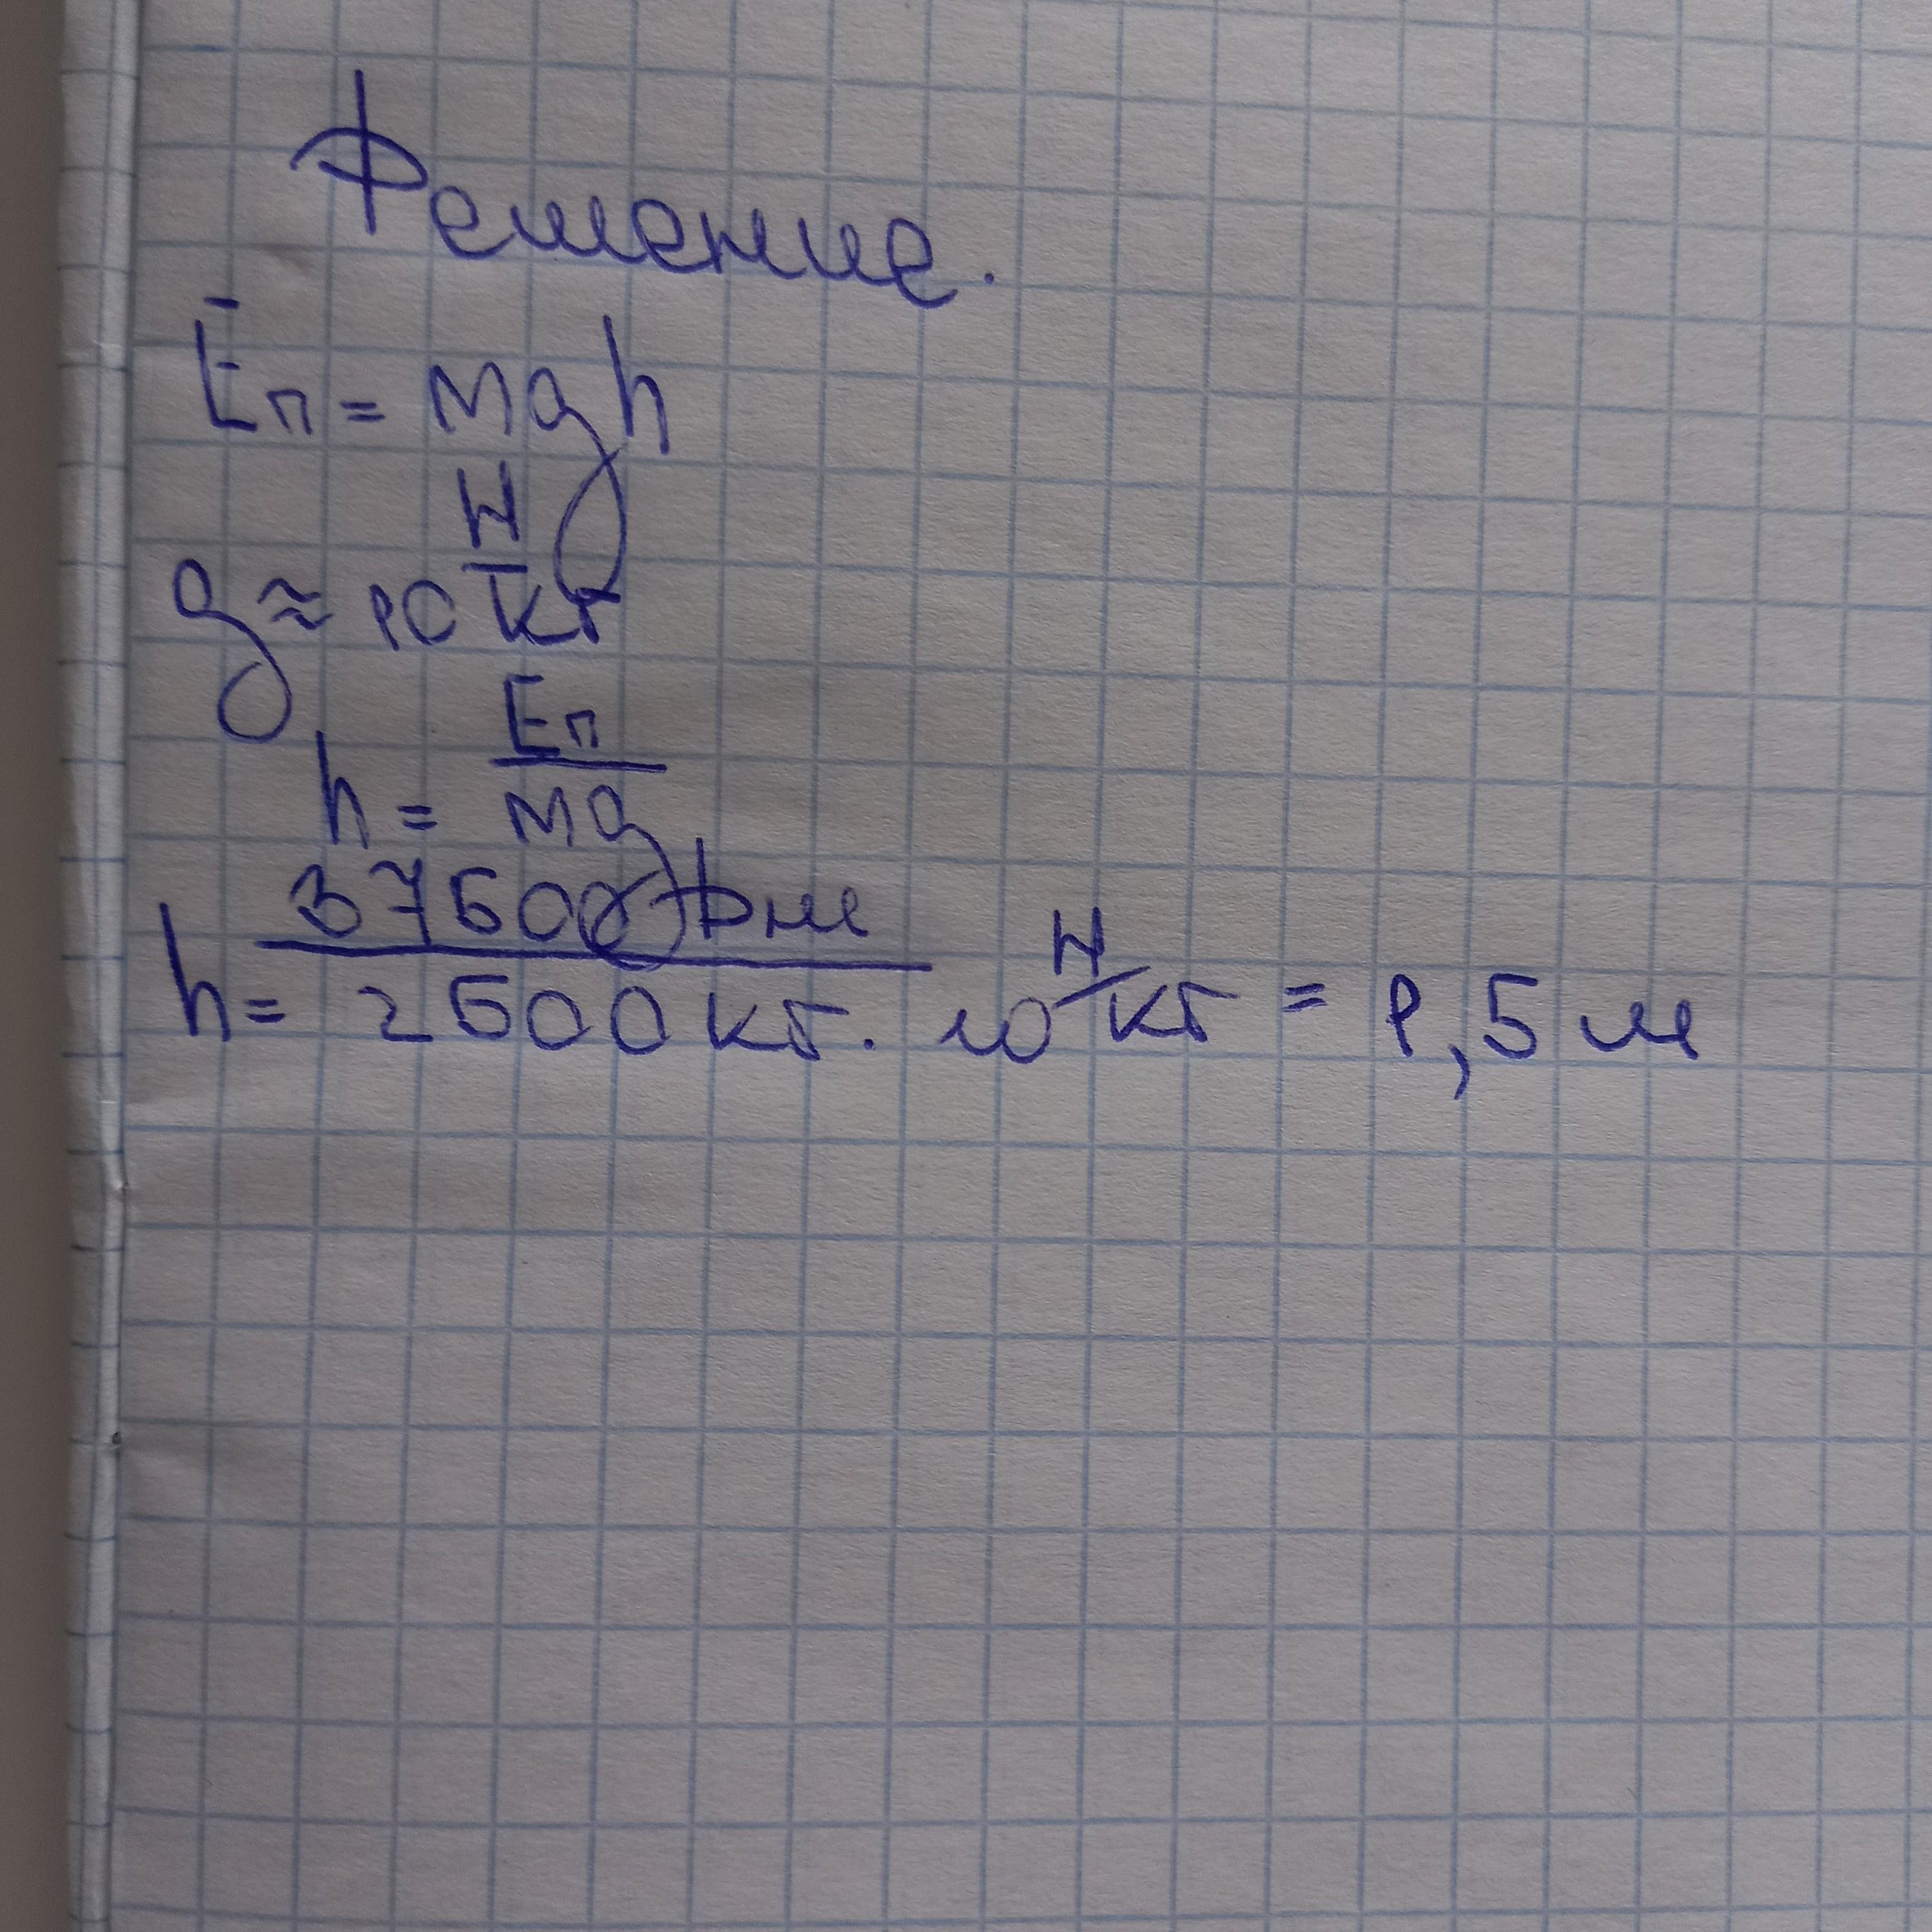 Решение.
Eп = mgh
g ≈ 10 Н/кг
h = Eп/mg
h = 37500 Дж/2500 кг · 10 Н/кг = 1,5 м